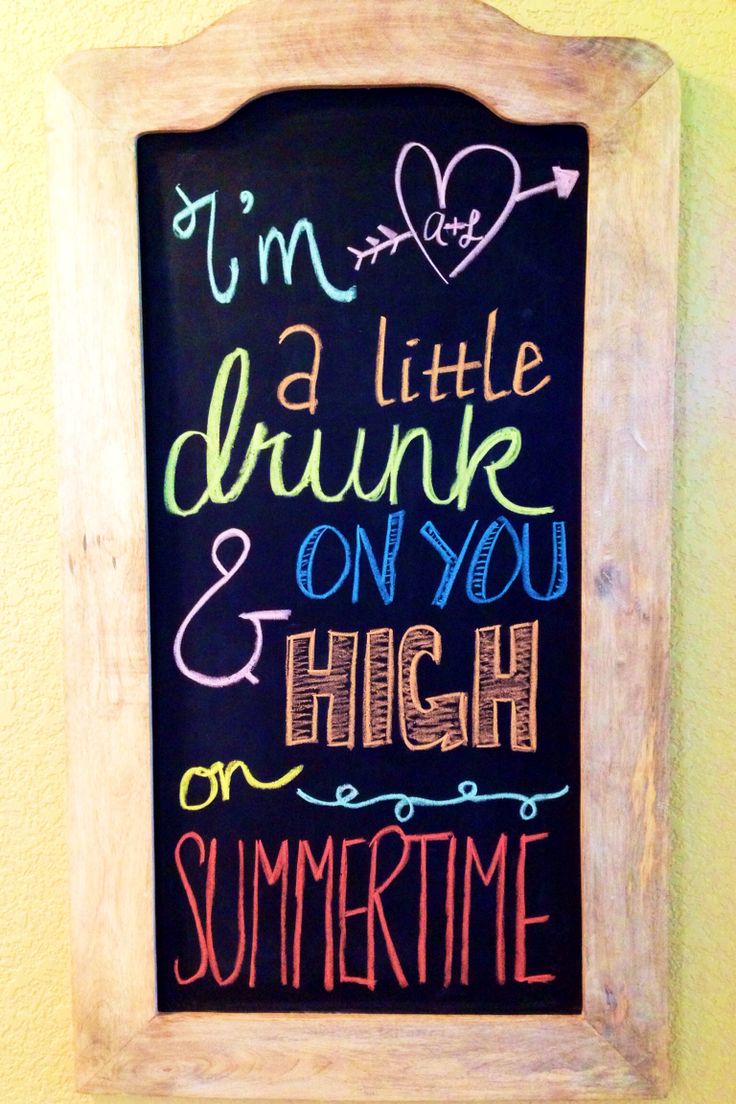 I'm
A+L
a little
drunk
ON YOU
& HIGH
on
SUMMERTIME